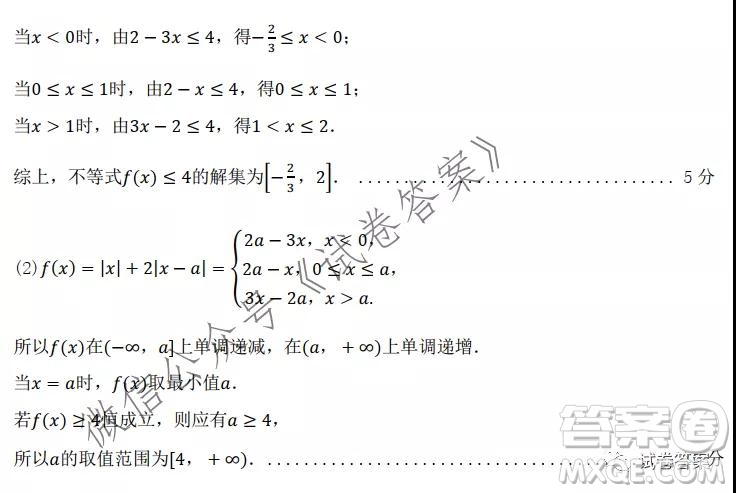 当x < 0时，由2 − 3x ≤ 4，得−2/3 ≤ x < 0；
当0 ≤ x ≤ 1时，由2 − x ≤ 4，得0 ≤ x ≤ 1；
当x > 1时，由3x − 2 ≤ 4，得1 < x ≤ 2．
综上，不等式f(x) ≤ 4的解集为[−2/3，2]． .................................... 5 分
(2) f(x) = |x| + 2|x − a| = {2a − 3x，x < 0，
2a − x，0 ≤ x ≤ a，
3x − 2a，x > a.
所以f(x)在(−∞，a]上单调递减，在(a，+∞)上单调递增．
当x = a时，f(x)取最小值a．
若f(x) ≥ 4恒成立，则应有a ≥ 4，
所以a的取值范围为[4，+∞)． .................................... 分
微信公众号《试卷答案》
答案圈
MXQE.COM
试卷答案